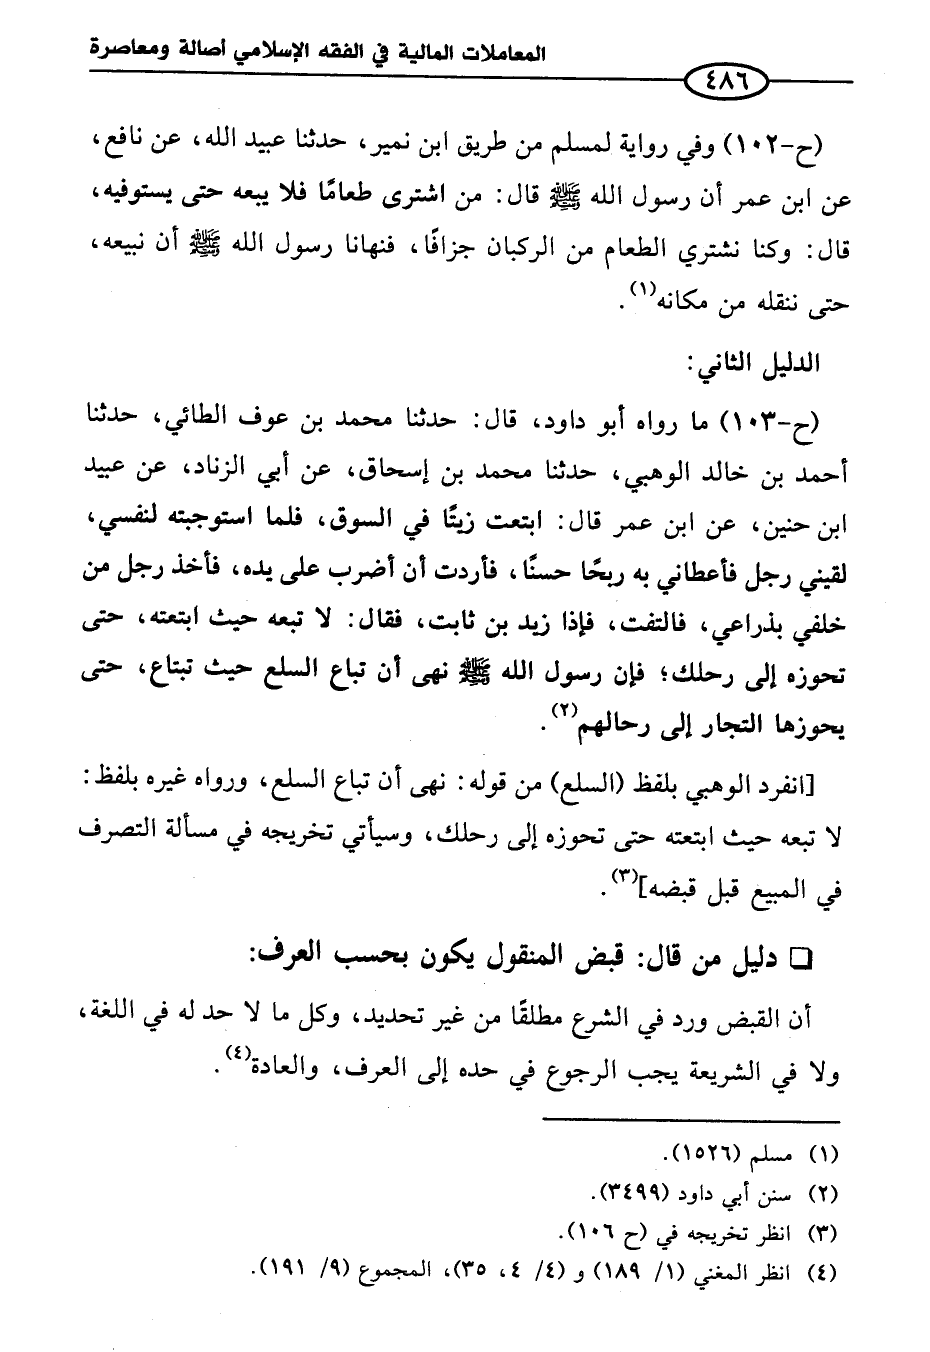 المعاملات المالية في الفقه الإسلامي أصالة ومعاصرة
٤٨٦
(ح-١٠٢) وفي رواية لمسلم من طريق ابن نمير، حدثنا عبيد الله، عن نافع،
عن ابن عمر أن رسول الله ﷺ قال: من اشترى طعامًا فلا يبعه حتى يستوفيه،
قال: وكنا نشتري الطعام من الركبان جزافًا، فنهانا رسول الله ﷺ أن نبيعه،
حتى ننقله من مكانه(١).
الدليل الثاني:
(ح-١٠٣) ما رواه أبو داود، قال: حدثنا محمد بن عوف الطائي، حدثنا
أحمد بن خالد الوهبي، حدثنا محمد بن إسحاق، عن أبي الزناد، عن عبيد
ابن حنين، عن ابن عمر قال: ابتعت زيتًا في السوق، فلما استوجبته لنفسي،
لقيني رجل فأعطاني به ربحًا حسنًا، فأردت أن أضرب على يده، فأخذ رجل من
خلفي بذراعي، فالتفت، فإذا زيد بن ثابت، فقال: لا تبعه حيث ابتعته، حتى
تحوزه إلى رحلك؛ فإن رسول الله ﷺ نهى أن تباع السلع حيث تبتاع، حتى
يحوزها التجار إلى رحالهم(٢).
[انفرد الوهبي بلفظ (السلع) من قوله: نهى أن تباع السلع، ورواه غيره بلفظ:
لا تبعه حيث ابتعته حتى تحوزه إلى رحلك، وسيأتي تخريجه في مسألة التصرف
في المبيع قبل قبضه](٣).
❏ دليل من قال: قبض المنقول يكون بحسب العرف:
أن القبض ورد في الشرع مطلقًا من غير تحديد، وكل ما لا حد له في اللغة،
ولا في الشريعة يجب الرجوع في حده إلى العرف، والعادة(٤).
(١) مسلم (١٥٢٦).
(٢) سنن أبي داود (٣٤٩٩).
(٣) انظر تخريجه في (ح ١٠٦).
(٤) انظر المغني (١/ ١٨٩) و (٤/ ٤، ٣٥)، المجموع (٩/ ١٩١).